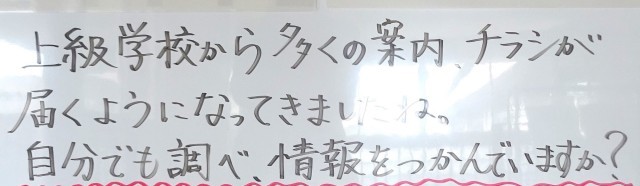 上級学校から多くの案内、チラシが
届くようになってきましたね。
自分でも調べ、情報をつかんでいますか?